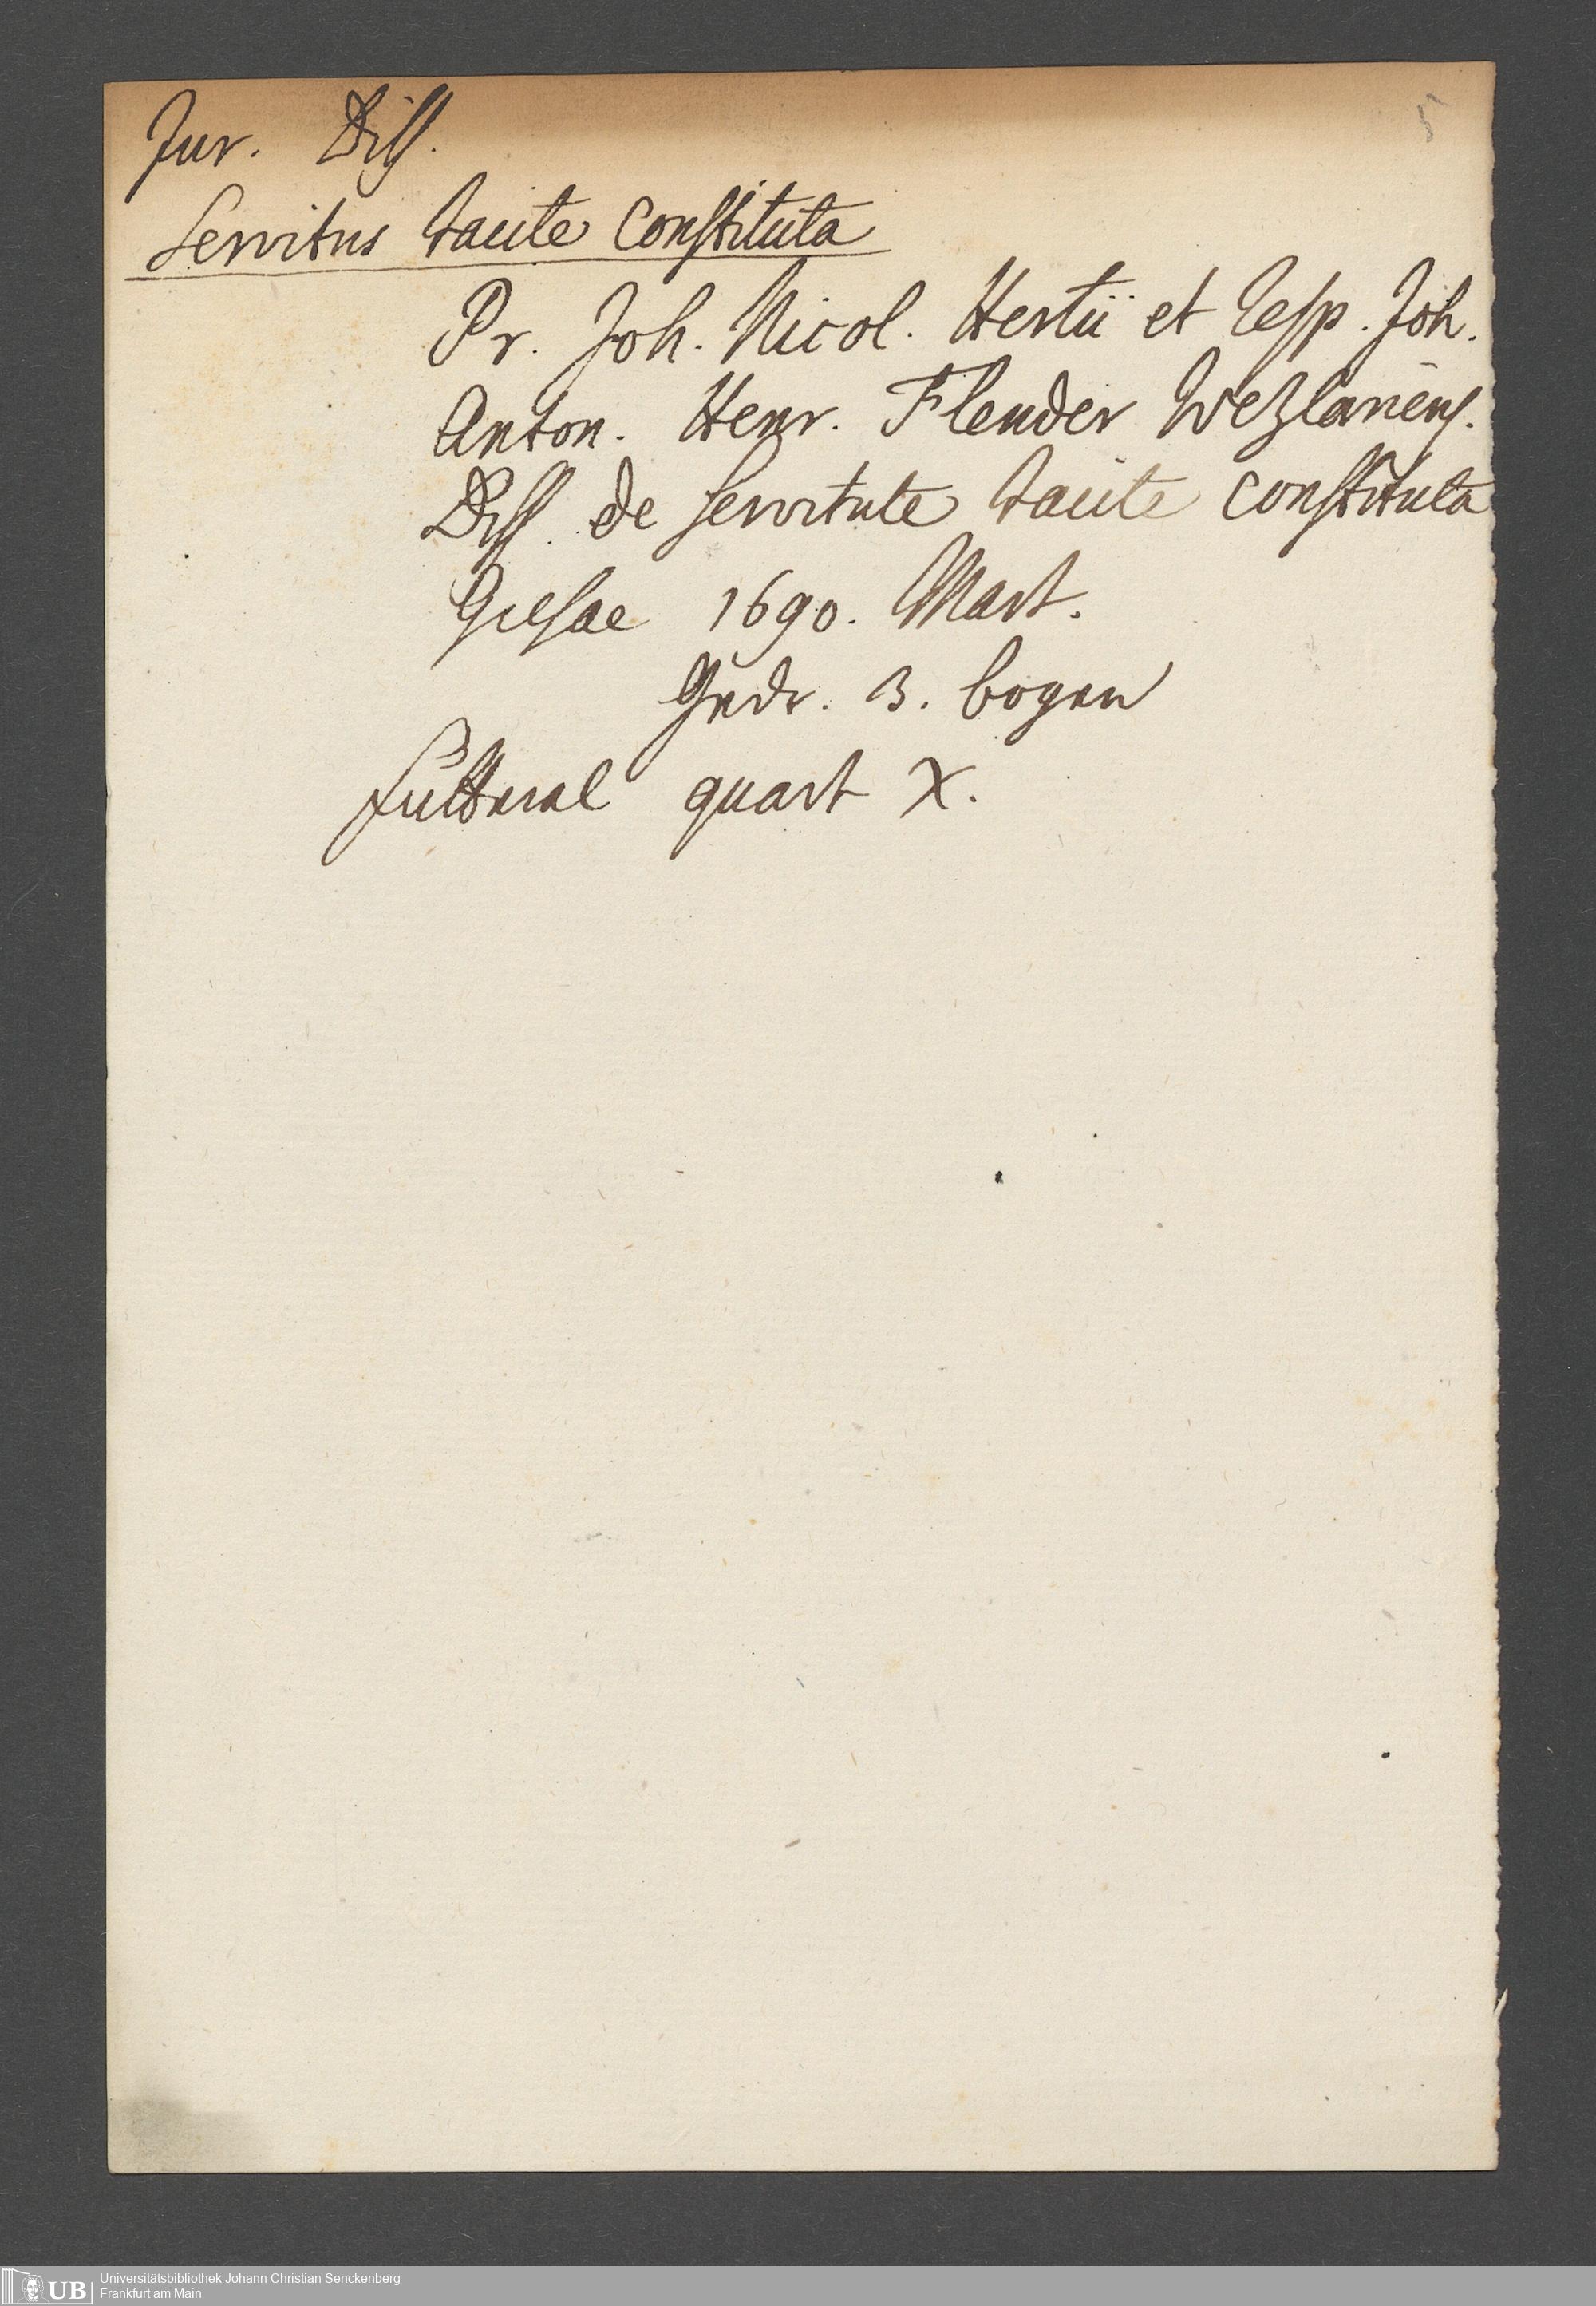 5
Jur. Diss.
Servitus tacite constituta
Pr. Joh. Nicol. Hertii et Resp. Joh.
Anton. Henr. Flender Wezlariens.
Diss. de servitute tacite constituta
Giessae 1690. Mart.
Gedr. 3. bogen
futteral quart X.
UB
Universitätsbibliothek Johann Christian Senckenberg
Frankfurt am Main